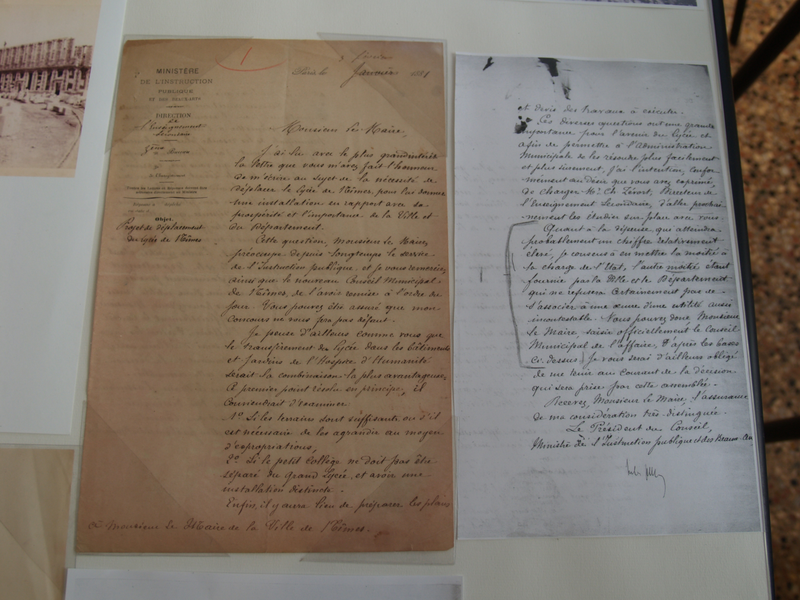 MINISTÈRE
DE L'INSTRUCTION
PUBLIQUE
ET DES BEAUX-ARTS
DIRECTION
de
l'Enseignement
Secondaire
Bureau
Objet
Projet de déplacement
du Lycée de Nîmes
1
Paris, le Janvier 1881
Monsieur le Maire,
J'ai lu avec le plus grand intérêt
la lettre que vous m'avez fait l'honneur
de m'écrire au sujet de la nécessité de
déplacer le Lycée de Nîmes, pour lui donner
une installation en rapport avec sa
prospérité et l'importance de la Ville et
du Département.
Cette question, Monsieur le Maire,
préoccupe depuis longtemps le service
de l'Instruction publique, et je vous remercie,
ainsi que le nouveau Conseil Municipal
de Nîmes, de l'avoir remise à l'ordre du
jour. Vous pouvez être assuré que mon
concours ne vous fera pas défaut.
Je pense d'ailleurs comme vous que
le transfèrement du Lycée dans les bâtiments
et jardins de l'Hospice d'Humanité
serait la combinaison la plus avantageuse,
Ce premier point résolu en principe, il
conviendrait d'examiner
1° Si les terrains sont suffisants ou s'il
est nécessaire de les agrandir au moyen
d'expropriations,
2° Si le petit Collège ne doit pas être
séparé du grand Lycée, et avoir une
installation distincte.
Enfin, il y aura lieu de préparer les plans
à Monsieur le Maire de la Ville de Nîmes.
et devis des travaux à exécuter.
Ces diverses questions ont une grande
importance pour l'avenir du Lycée et
afin de permettre à l'Administration
Municipale de les résoudre plus facilement
et plus sûrement, j'ai l'intention, confor
mément au désir que vous avez exprimé
de charger Mr. Ch. Zévort, Directeur de
l'Enseignement Secondaire, d'aller prochai
nement les étudier sur place avec vous.
Quant à la dépense qui atteindra
probablement un chiffre relativement
élevé, je consens à en mettre la moitié à
la charge de l'État, l'autre moitié étant
fournie par la Ville et le Département
qui ne refusera certainement pas de
s'associer à une œuvre d'une utilité aussi
incontestable. Vous pouvez donc Monsieur
le Maire saisir officiellement le Conseil
Municipal de l'affaire, d'après les bases
ci-dessus. Je vous serai d'ailleurs obligé
de me tenir au courant de la décision
qui sera prise par cette assemblée.
Recevez, Monsieur le Maire, l'assurance
de ma considération très distinguée
Le Président du Conseil,
Ministre de l'Instruction publique et des Beaux-Arts